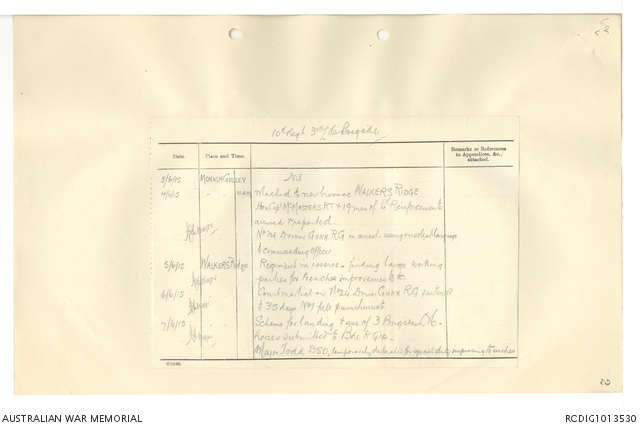 10th Regt 3rd L H Brigade
Date. Place and Time. Remarks or References to Appendices, &c., attached.
3/6/15 MONASH GULLEY Nil
4/6/15 " " Marched to new bivouac WALKERS RIDGE
Hon Capt McMASTERS & 19 men of 4th Reinforcements
arrived & reported
No 74 Driver GUNN R.G. in arrest using insolent language
to Commanding Officer
5/6/15 WALKERS Ridge Regiment in reserve – finding large working
parties for trenches improvements &c
6/6/15 " " Court martial on No 74 Driver GUNN R.G. sentenced
to 35 days No 1 field punishment
7/6/15 " " Scheme for landing & use of 3 Brigades
horses submitted to
Major TODD DSO, temporarily detailed for special duty improving trenches
AUSTRALIAN WAR MEMORIAL
RCDIG1013530